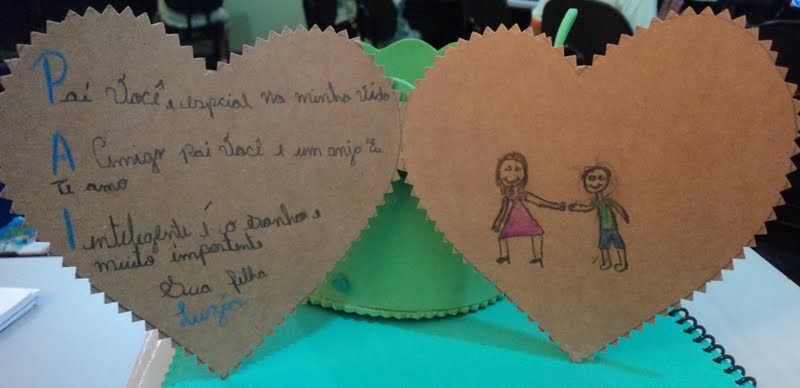 Pai Você e espcial na minha vida
A Amigo pai Você e um anjo Eu
Te amo
Intelegente é o sonho e
muito importente
Sua filha
Luzia